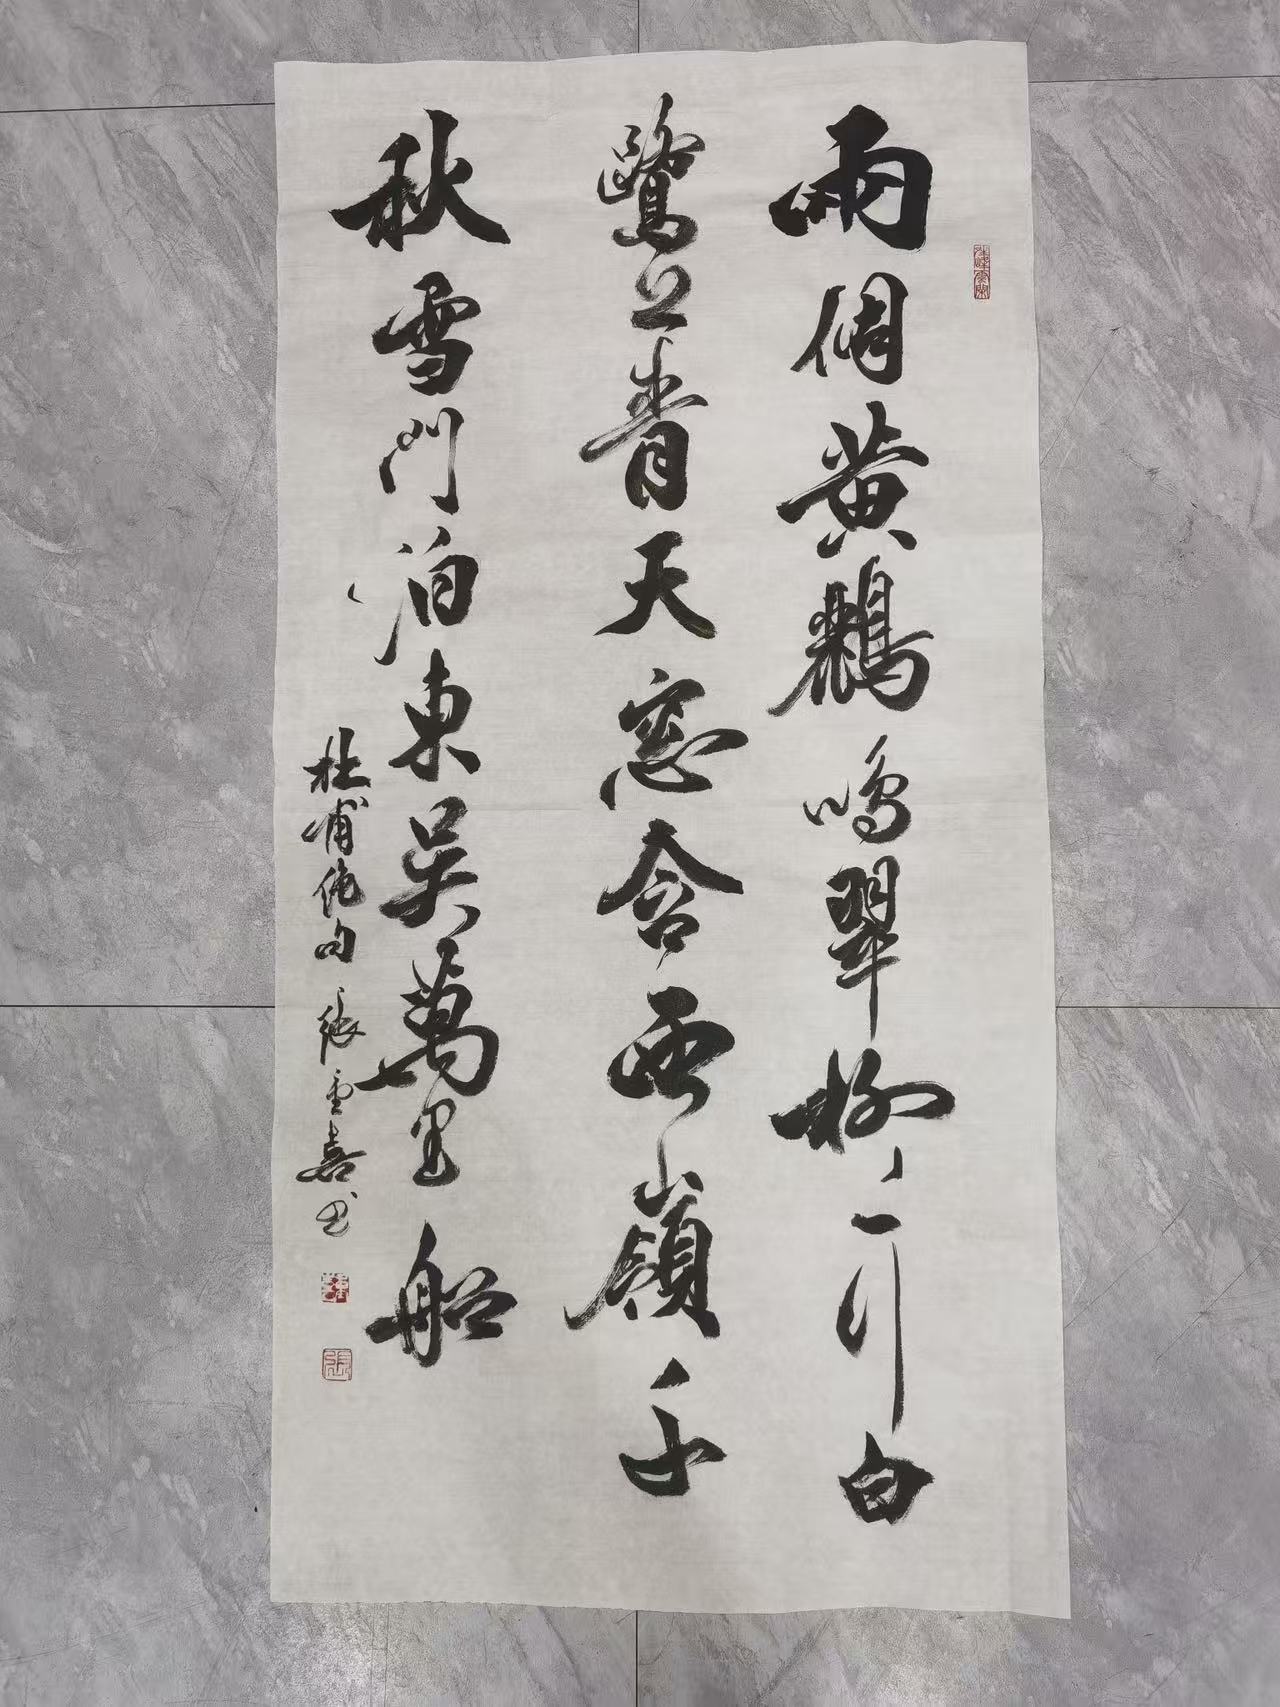 兩個黃鸝鳴翠柳一行白
鷺上青天窓含西嶺千
秋雪門泊東吳萬里船
杜甫絕句 張雲喜书
張